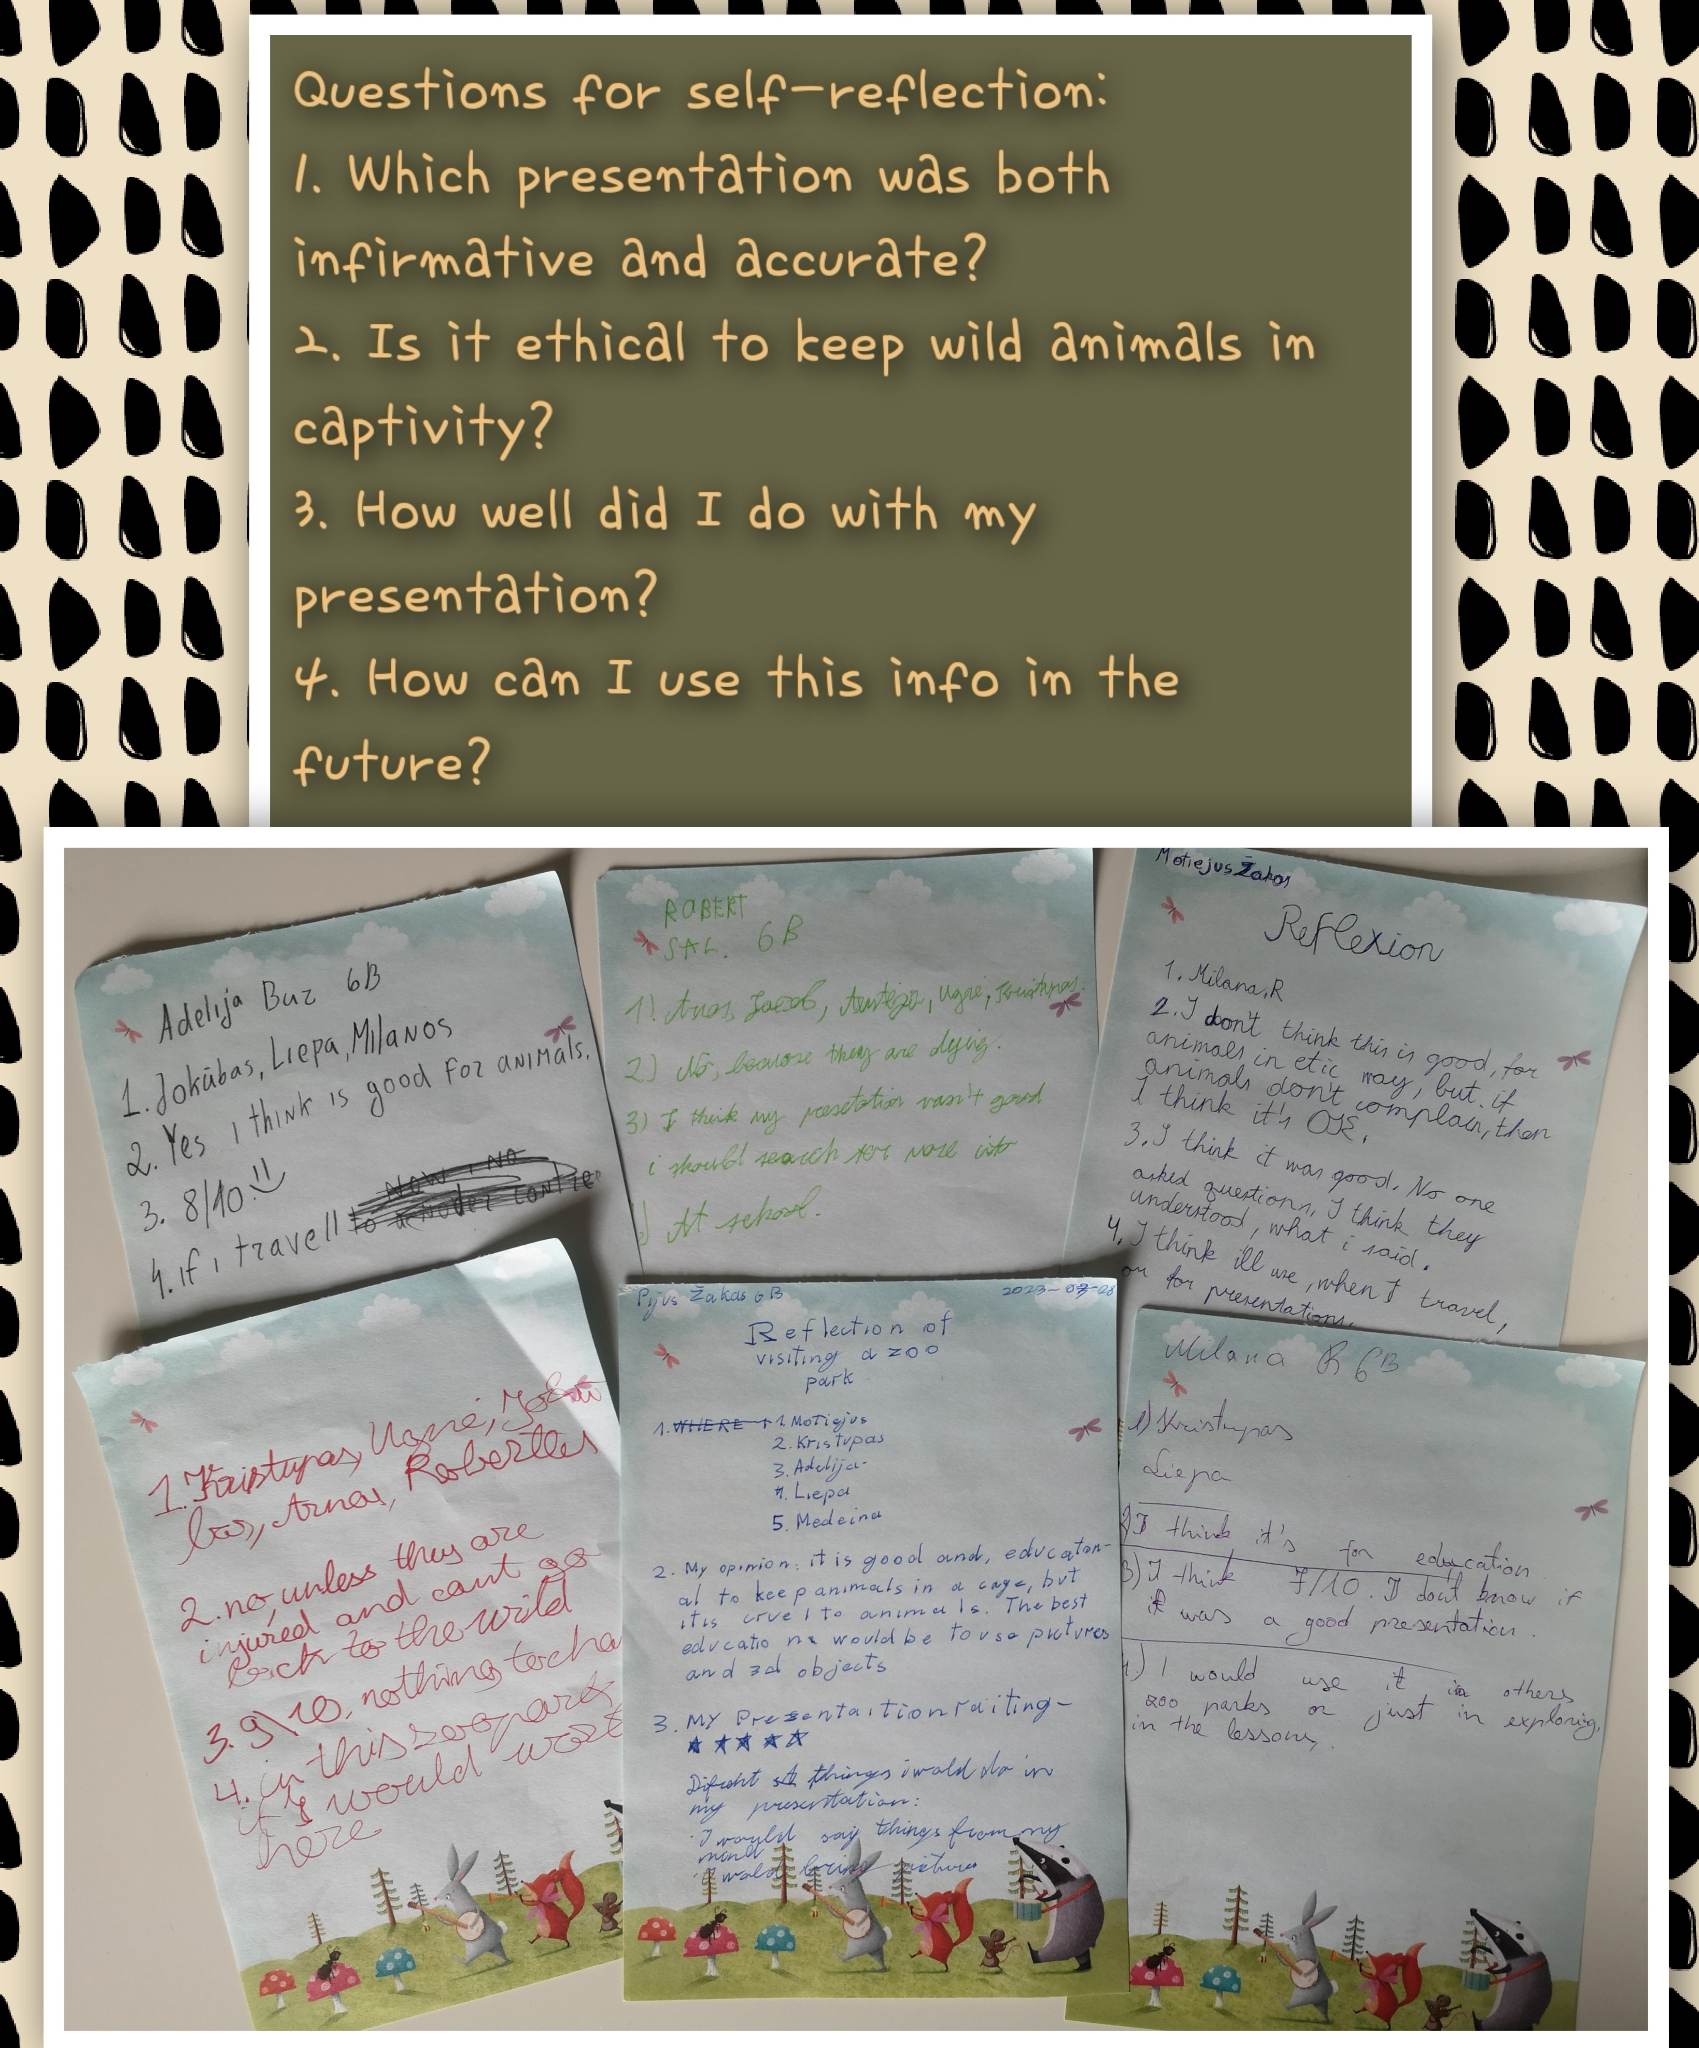 Questions for self-reflection:
1. Which presentation was both
infirmative and accurate?
2. Is it ethical to keep wild animals in
captivity?
3. How well did I do with my
presentation?
4. How can I use this info in the
future?
Adelija Buz 6B
1. Jokūbas, Liepa, Milanos
2. Yes i think is good for animals.
3. 8/10
4. if i travell
ROBERT
SAL. 6B
1) Arnas, Jacob, Ugnė, Kristupas.
2) No, because they are dying.
3) I think my presetation wasn't good
i should search for more info
At school.
Motiejus Žakas
Reflexion
1. Milana, R
2. I don't think this is good, for
animals in etic way, but if
animals don't complain, then
I think it's OK.
3. I think it was good. No one
asked questions, I think they
understood, what i said.
4. I think ill use, when I travel,
or for presentations.
1. Kristupas, Ugnė,
bas, Arnas, Robertas
2. no, unless they are
injured and cant go
back to the wild
3. 9\10, nothing to cha
4. in this zoo park
it's would
here
Pijus Žakas 6B
Reflection of
visiting a zoo
park
1. WHERE 1. Motiejus
2. Kristupas
3. Adelija
4. Liepa
5. Medeina
2. My opinion: it is good and, educaton-
al to keep animals in a cage, but
it is cruel to animals. The best
would be to use pictures
and 3d objects
3. MY Presentaition raiting-
things i wold do in
my presentation:
I would say things from my
mind
I wold bring pictures
Milana R 6B
1) Kristupas
Liepa
2) I think it's for education
3) I think 7/10. I don't know if
it was a good presentation.
4.) I would use it in others
zoo parks or just in exploring,
in the lessons.